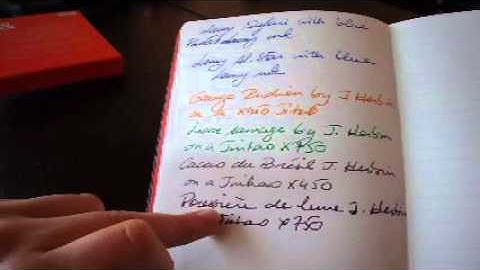 Lamy Safari with blue
Lamy ink
Lamy Al-Star with blue
Lamy ink
Orange Indien by J. Herbin
on a X450 Jinhao
Lierre sauvage by J. Herbin
on a Jinhao X750
Cacao du Brésil J. Herbin
on a Jinhao X450
Poussière de lune J. Herbin
Jinhao X750